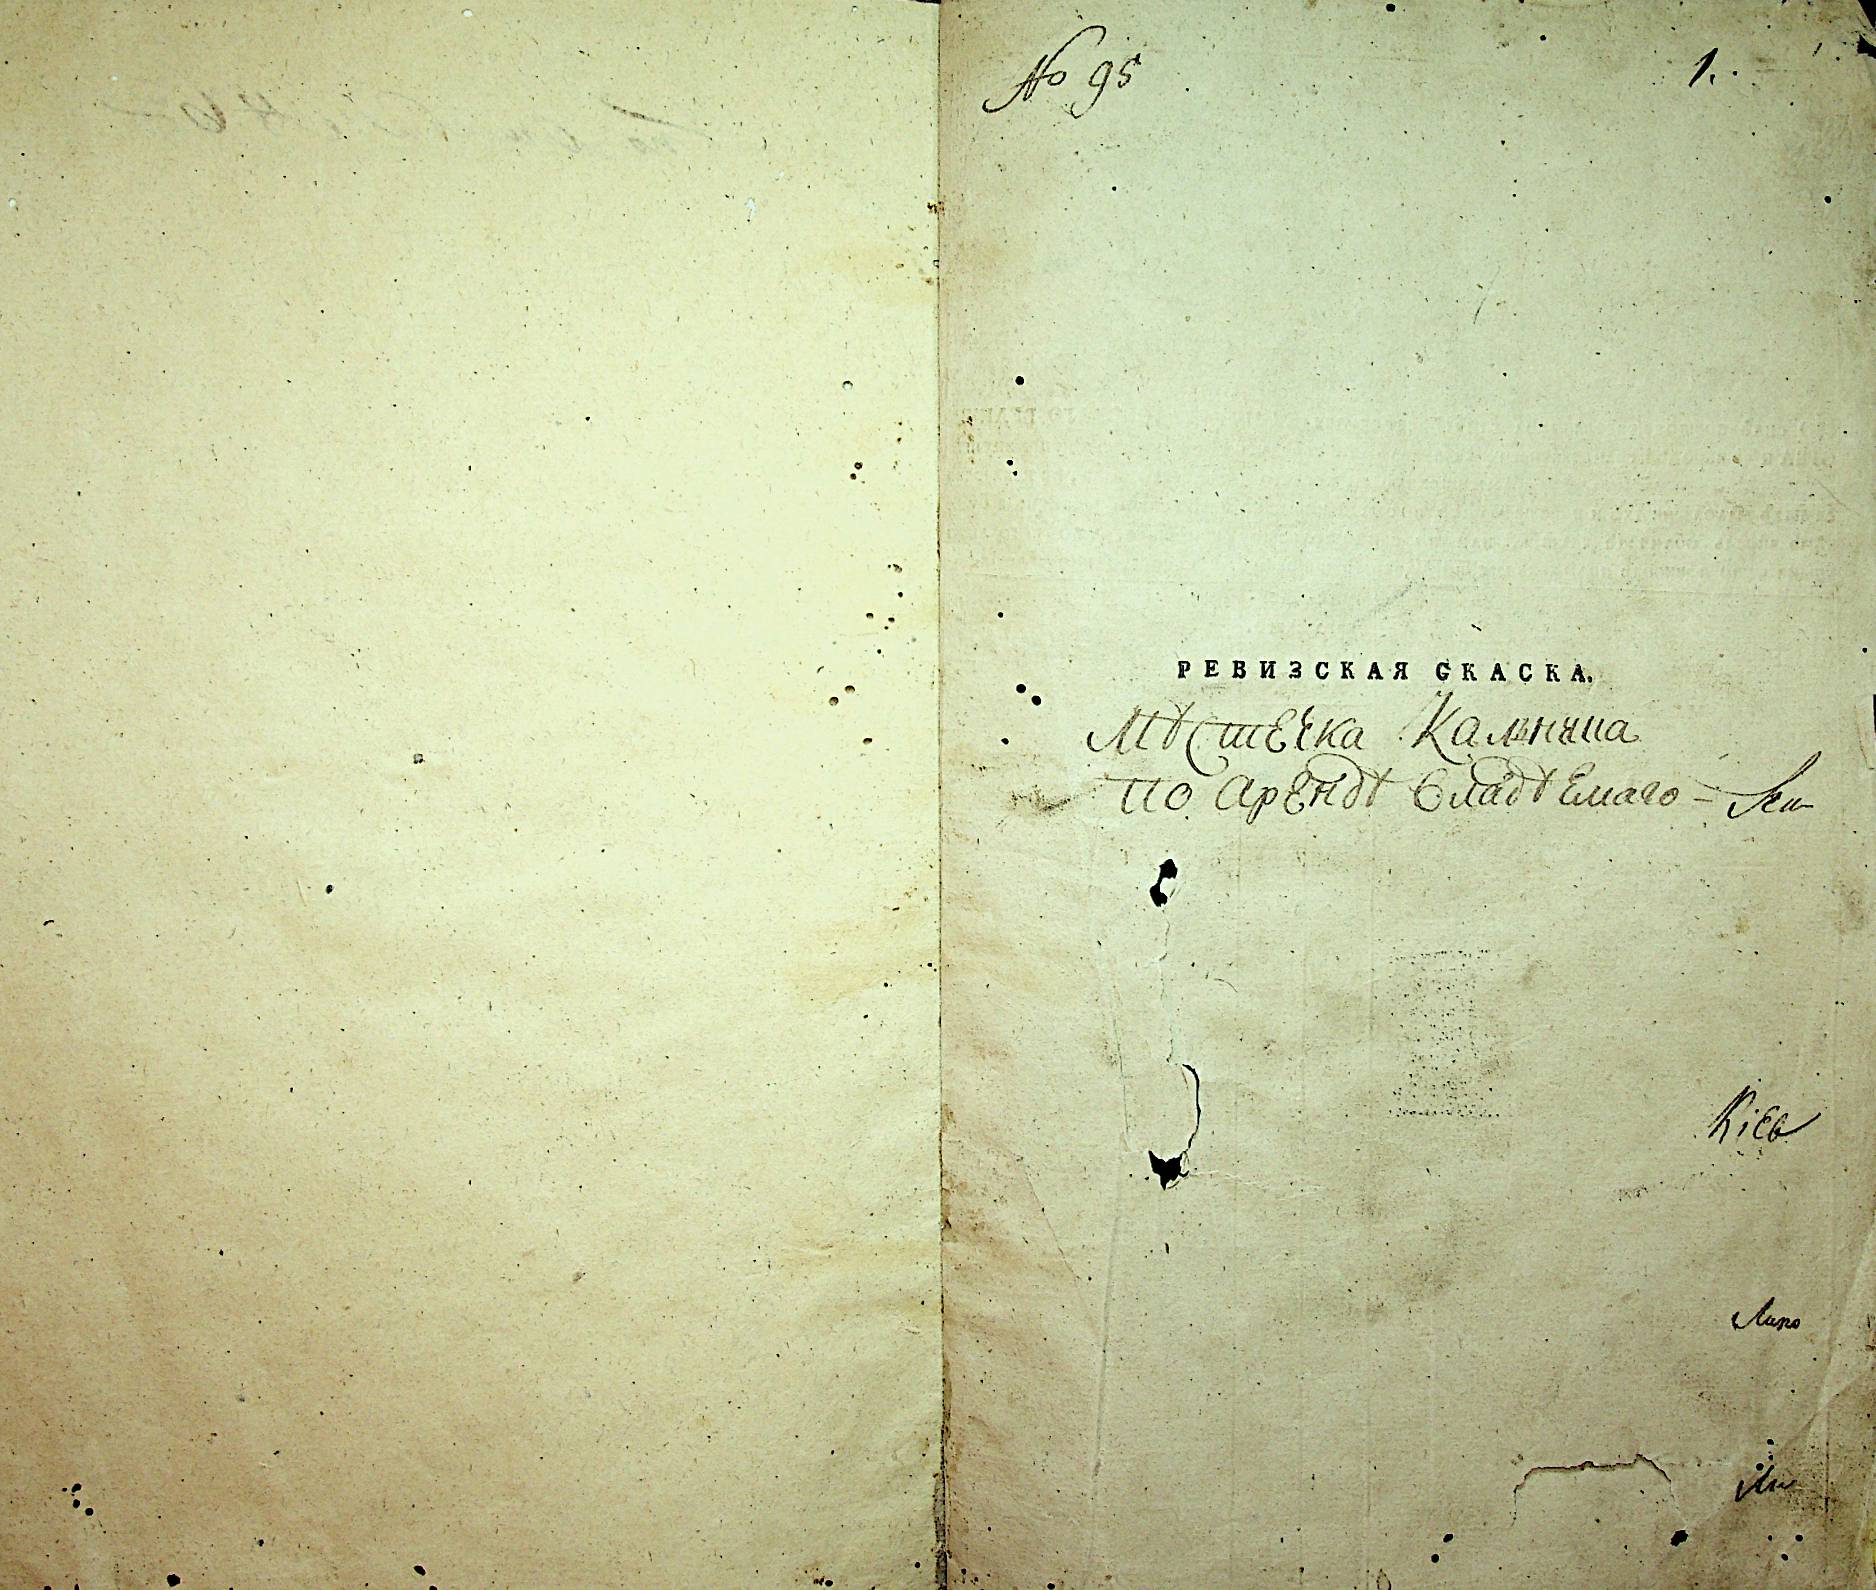 № 95
1.
РЕВИЗСКАЯ СКАСКА.
Мѣстечка Кальныка
по арендѣ владѣемаго –
Кіев
Липо